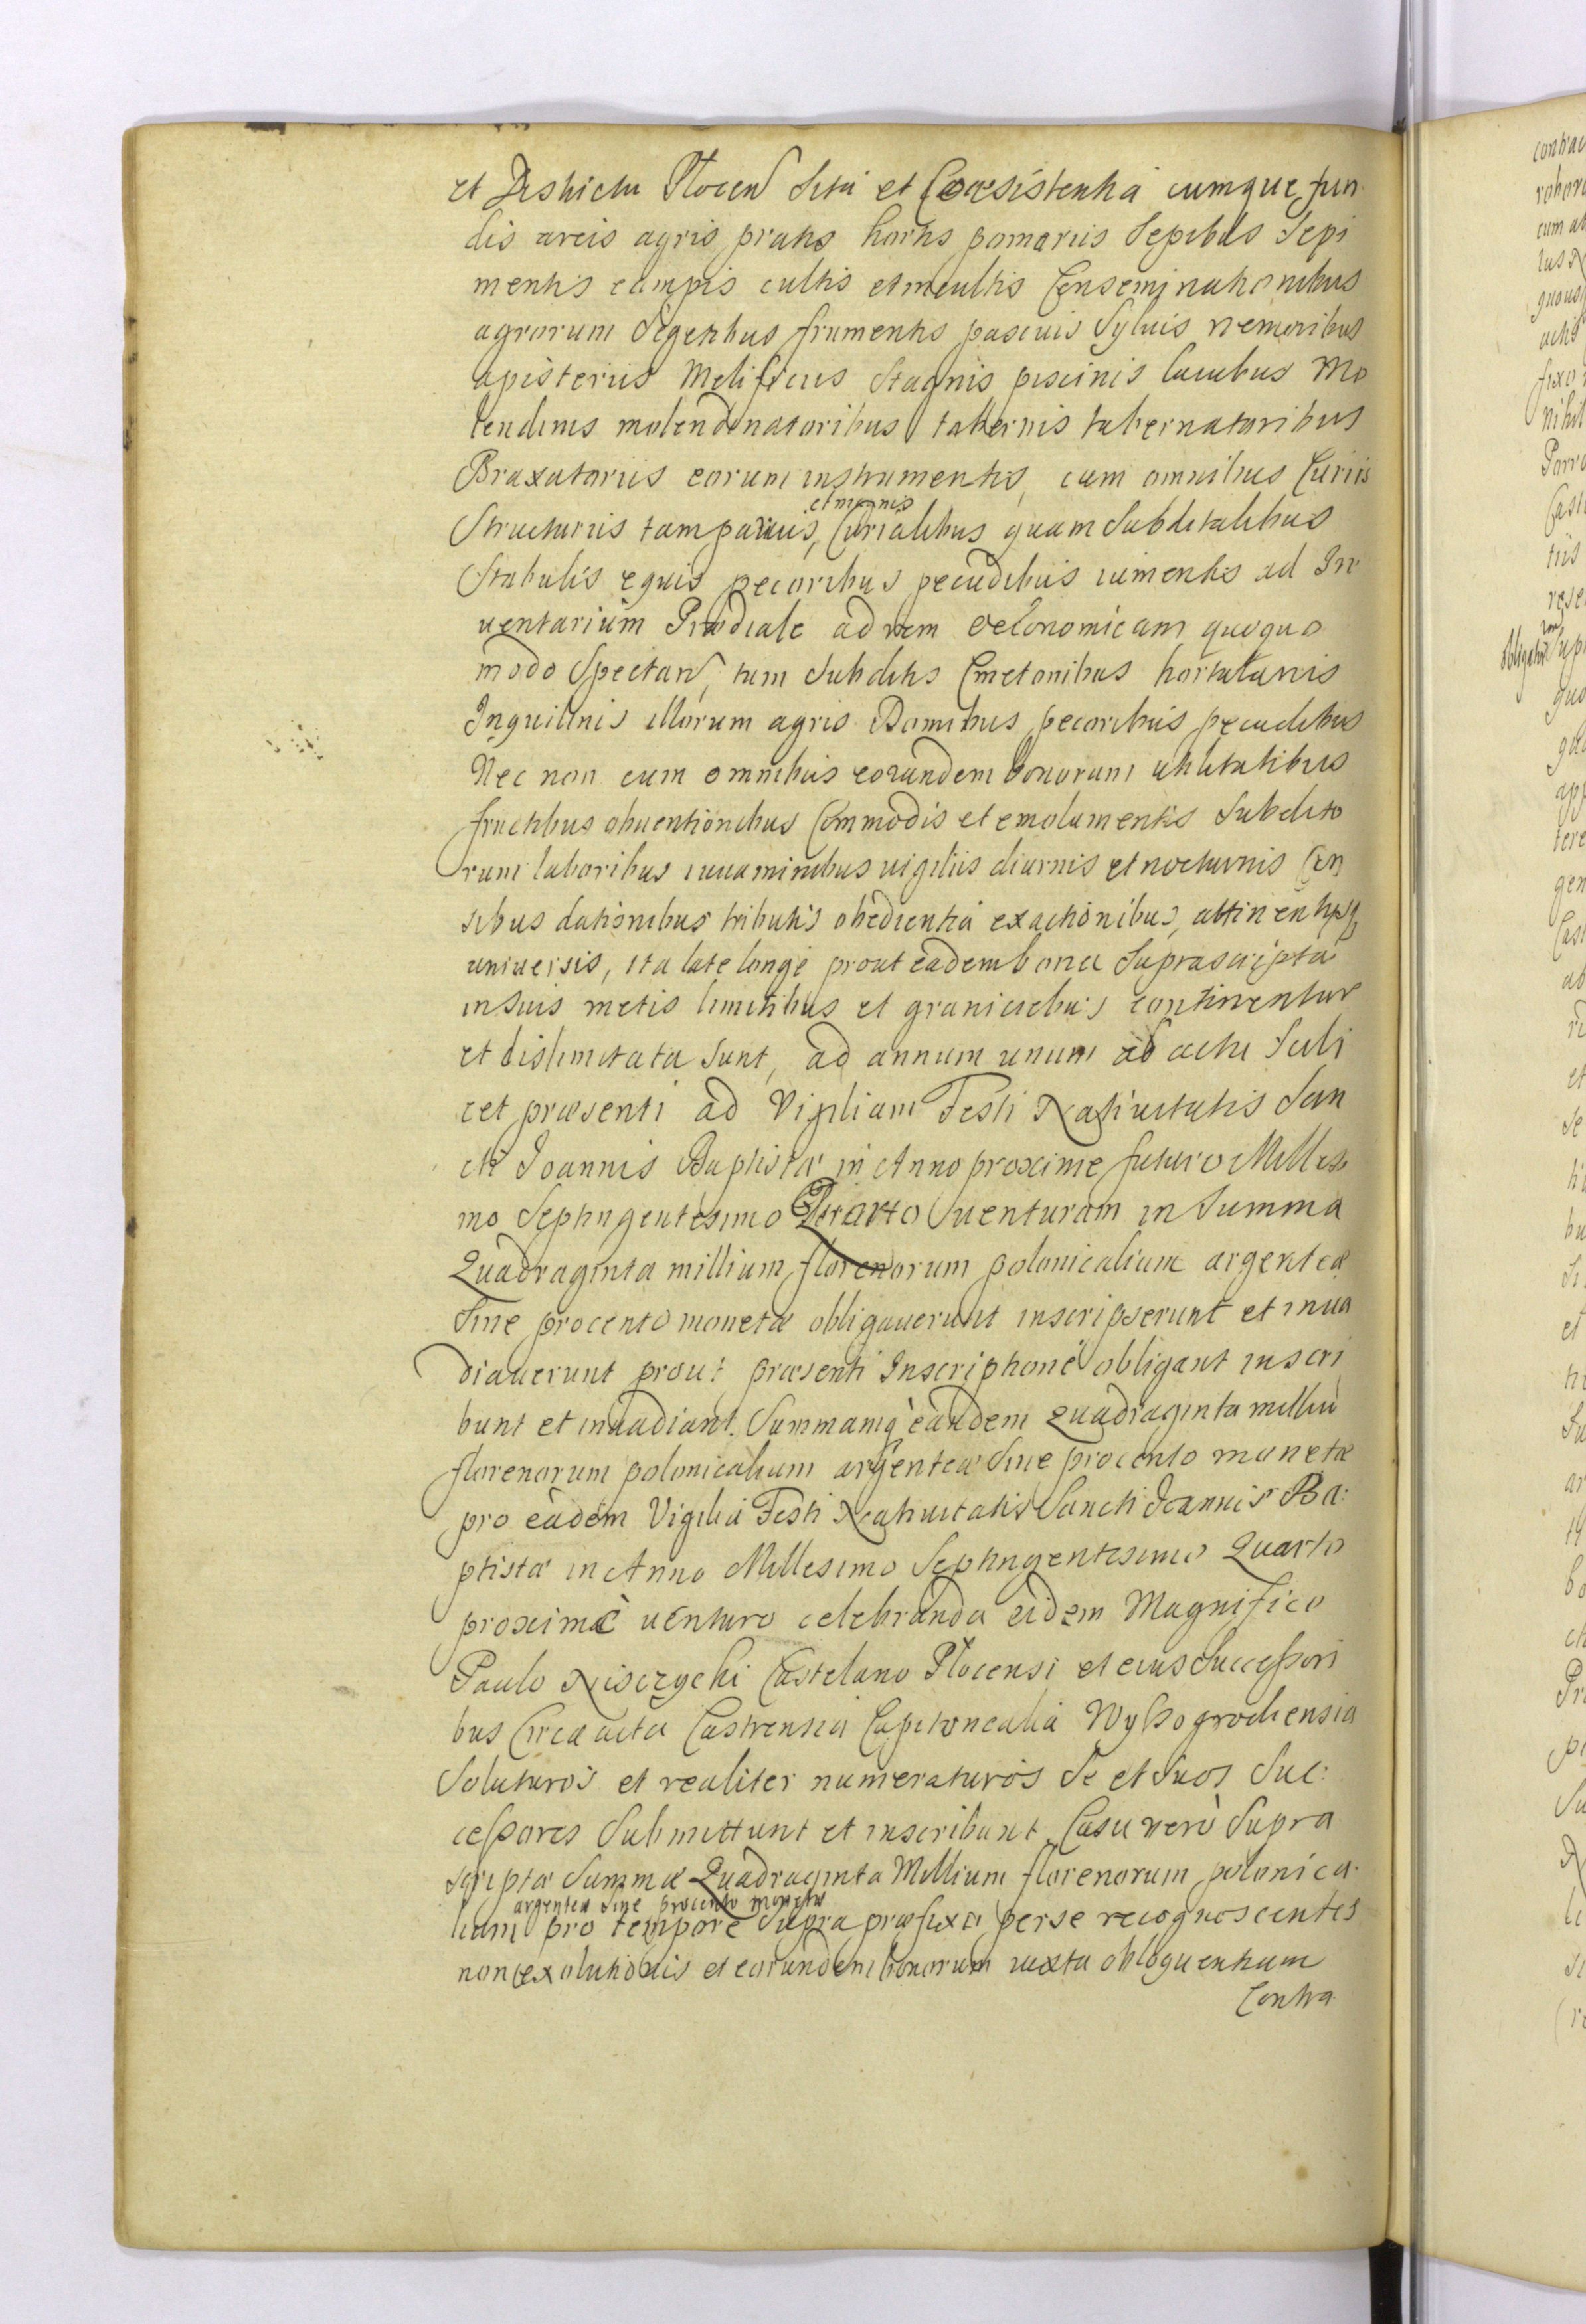 et Districtu Plocen Sita et Consistentia cumque fun
dis areis agris pratis hortis pomariis Sepibus Sepi
mentis campis cultis et incultis Conseminationibus
agrorum Segetibus frumentis pascuis Syluis nemoribus
apisteriis Melificiis Stagnis piscinis lacubus Mo
lendinis molendinatoribus tabernis tabernatoribus
Braxatoriis eorum instrumentis, cum omnibus Curiis
et magnis
Structuriis tam paruis, Curialibus quam Subditalibus
Stabulis equis pecoribus pecudibus iumentis ad In
uentarium Prædiale ad rem oeconomicam quoquo
modo Spectan, tum Subditis Cmetonibus hortulanis
Inquilinis illorum agris Domibus pecoribus pecudibus
Nec non cum omnibus eorundem bonorum utilitatibus
fructibus obuentionibus Commodis et emolumentis Subdito
rum laboribus iuuaminibus uigiliis diurnis et nocturnis Cen
sibus dationibus tributis obedientia exactionibus, attinentysq
uniuersis, ita late longe prout eadem bona Suprascripta
in Suis metis limitibus et graniciebus continentur
et dislimitata Sunt, ad annum unum ab actu Scili
cet præsenti ad Vigiliam Festi Natiuitatis San
cti Joannis Baptistæ in Anno proxime futuro Millesi
mo Septingentesimo Quarto uenturam in Summa
Quadraginta millium florenorum polonicalium argenteæ
Sine procento monetæ obligauerunt inscripserunt et inua
diauerunt prout præsenti Inscriptione obligant inscri
bunt et inuadiant. Summamq eandem quadraginta milliu
florenorum polonicalium argenteæ Sine procento monetæ
pro eadem Vigilia Festi Natiuitatis Sancti Joannis Ba:
ptistæ in Anno Millesimo Septingentesimo Quarto
proximè uenturo celebranda eidem Magnifico
Paulo Nisczycki Castelano Plocensi et eius Successori
bus Circa acta Castrensia Capitonealia Wyssogrodiensia
Soluturos et realiter numeraturos Se et Suos Suc:
cessores Submittunt et inscribunt. Casu verò Supra
scriptæ Summæ Quadraginta Millium florenorum polonica
argenteæ Sine procento monetæ
lium pro tempore Supra præfixo per se recognoscentes
non exolutionis et eorundem bonorum iuxta obloquentiam
Contra